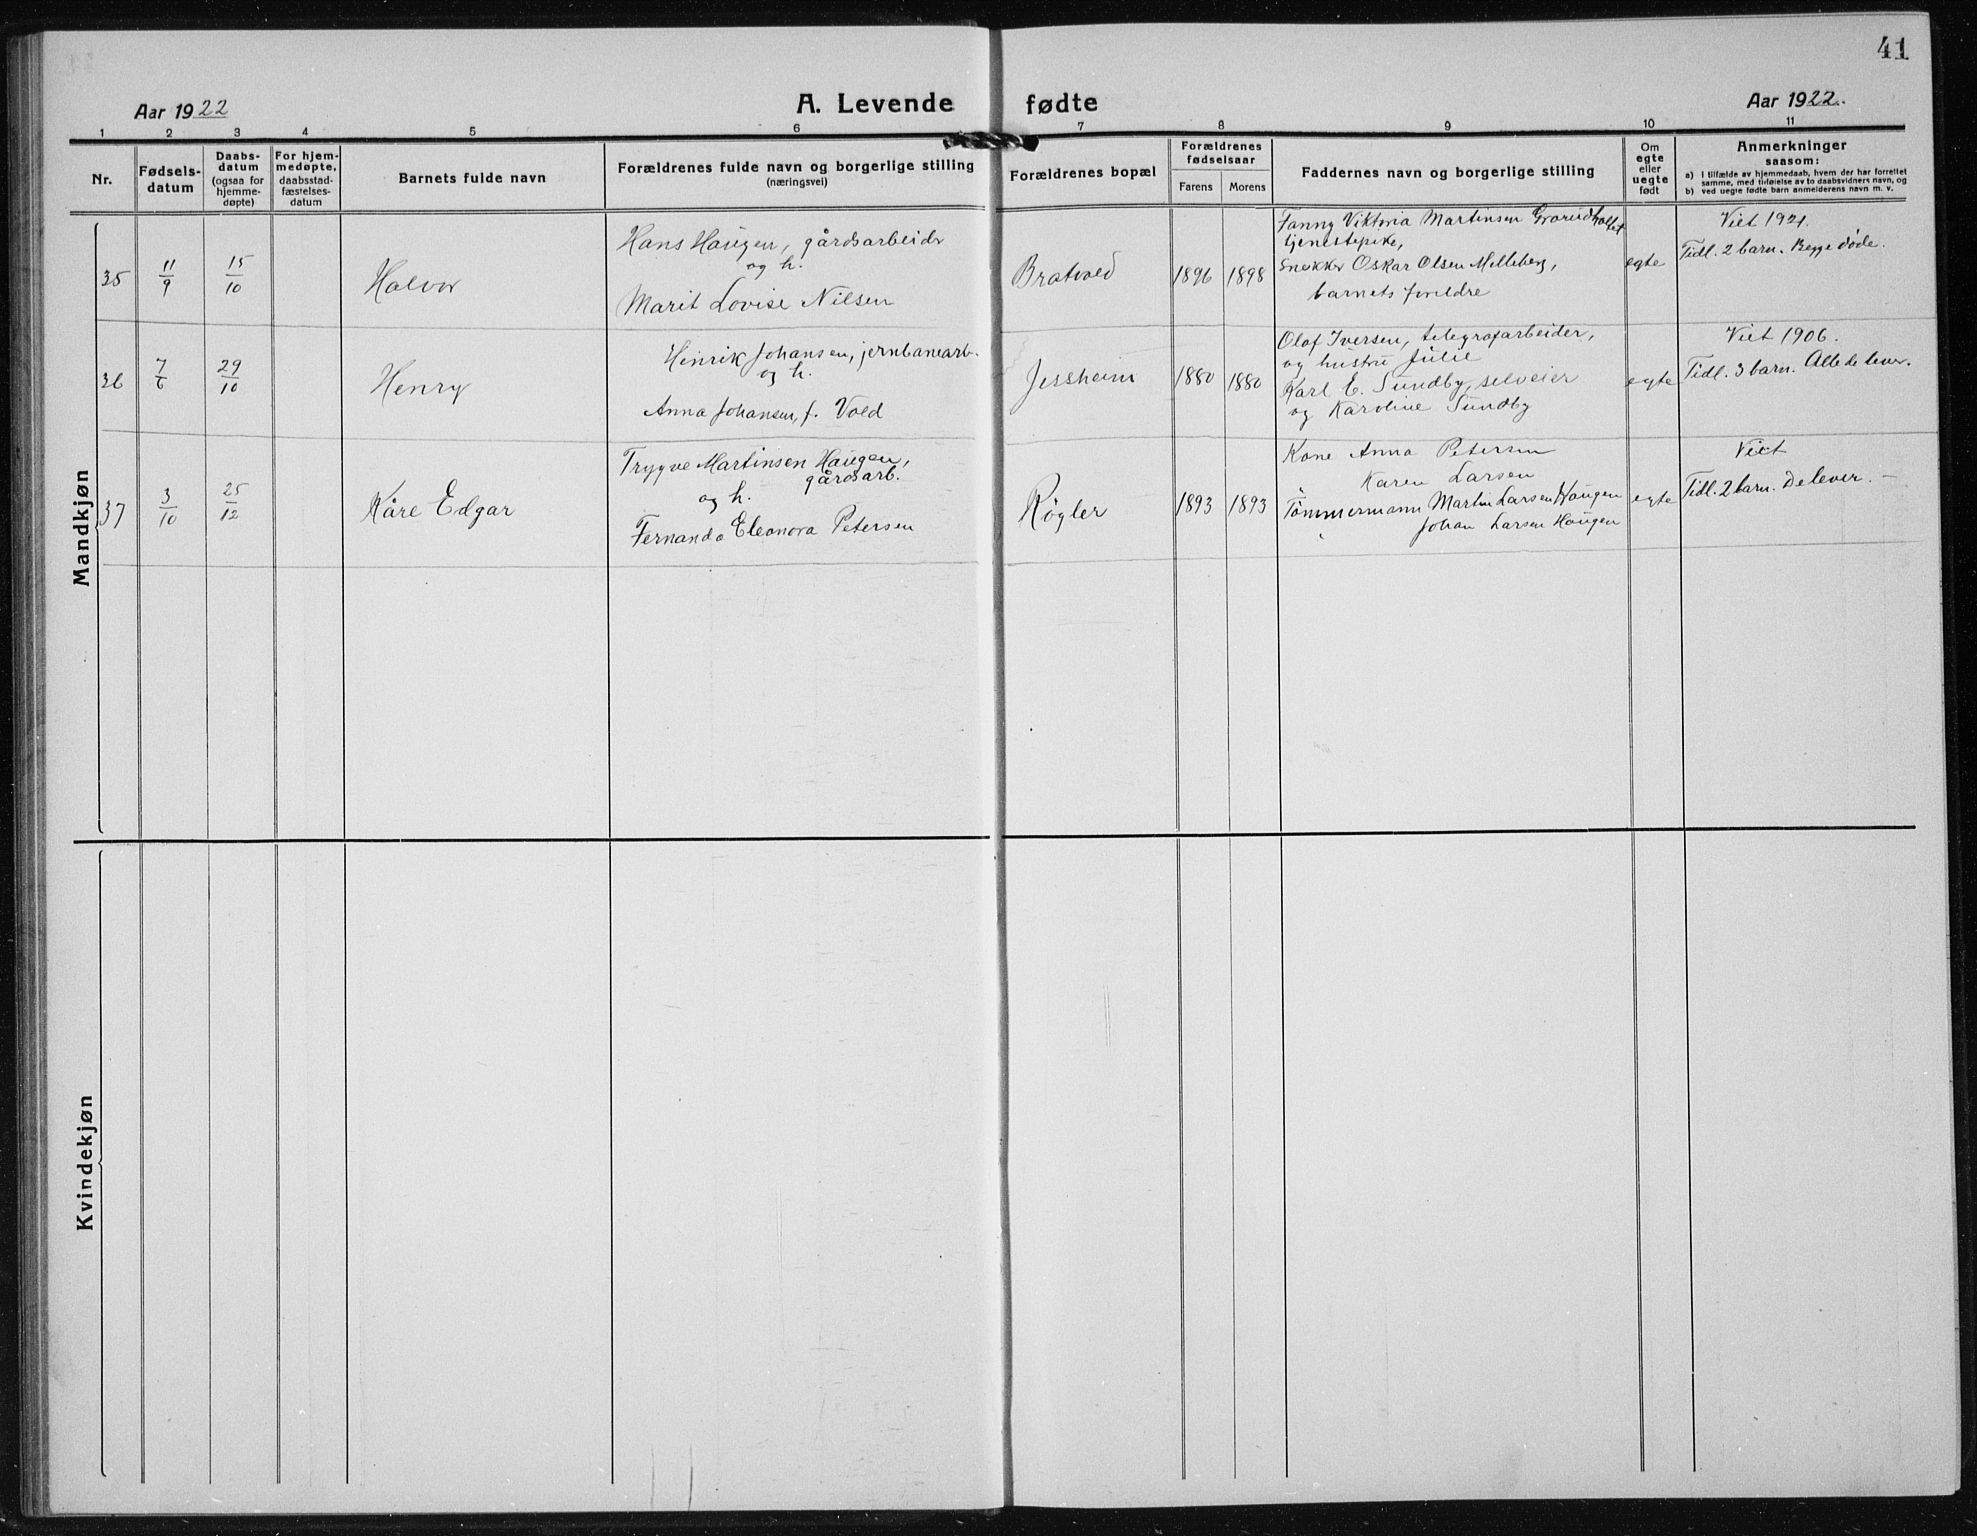 41
Aar 1922
A. Levende fødte
Aar 1922.
1 2 3 4 5 6 7 8 9 10 11
Nr.
Fødsels-
datum
Daabs-
datum
(ogsaa for
hjemme-
døpte)
For hjem-
medøpte,
daabsstad-
fæstelses-
datum
Barnets fulde navn
Forældrenes fulde navn og borgerlige stilling
(næringsvei)
Forældrenes bopæl
Forældrenes
fødselsaar
Farens
Morens
Faddernes navn og borgerlige stilling
Om
egte
eller
uegte
født
Anmerkninger
saasom:
a) I tilfælde av hjemmedaab, hvem der har forrettet
samme, med tilføielse av to daabsvidners navn, og
b) ved uegte fødte barn anmelderens navn m. v.
Mandkjøn
35
11/9
15/10
Halvor
Hans Haugen, gårdsarbeider
og h.
Marit Lovise Nilsen
Bratvold
1896
1898
Fanny Viktoria Martinsen
tjenestepike,
Snekker Oskar Olsen Melleberg,
barnets foreldre
egte
Viet 1921.
Tidl. 2 barn. Begge døde.
36
7/6
29/10
Henry
Henrik Johansen, jernbanearb.
og h.
Anna Johansen, f. Vold
Jessheim
1880
1880
Olaf Iversen, telegrafarbeider,
og hustru Julie
Karl E. Sundby, selveier
og Karoline Sundby
egte
Viet 1906.
Tidl. 3 barn. Alle de lever.
37
3/10
25/12
Kåre Edgar
Trygve Martinsen Haugen,
gårdsarb.
og h.
Fernanda Eleonora Petersen
Røgler
1893
1893
Kone Anna Petersen
Karen Larsen
Tømmermann Martin Larsen Haugen
Johan Larsen Haugen
egte
Viet
Tidl. 2 barn. De lever. —
Kvindekjøn